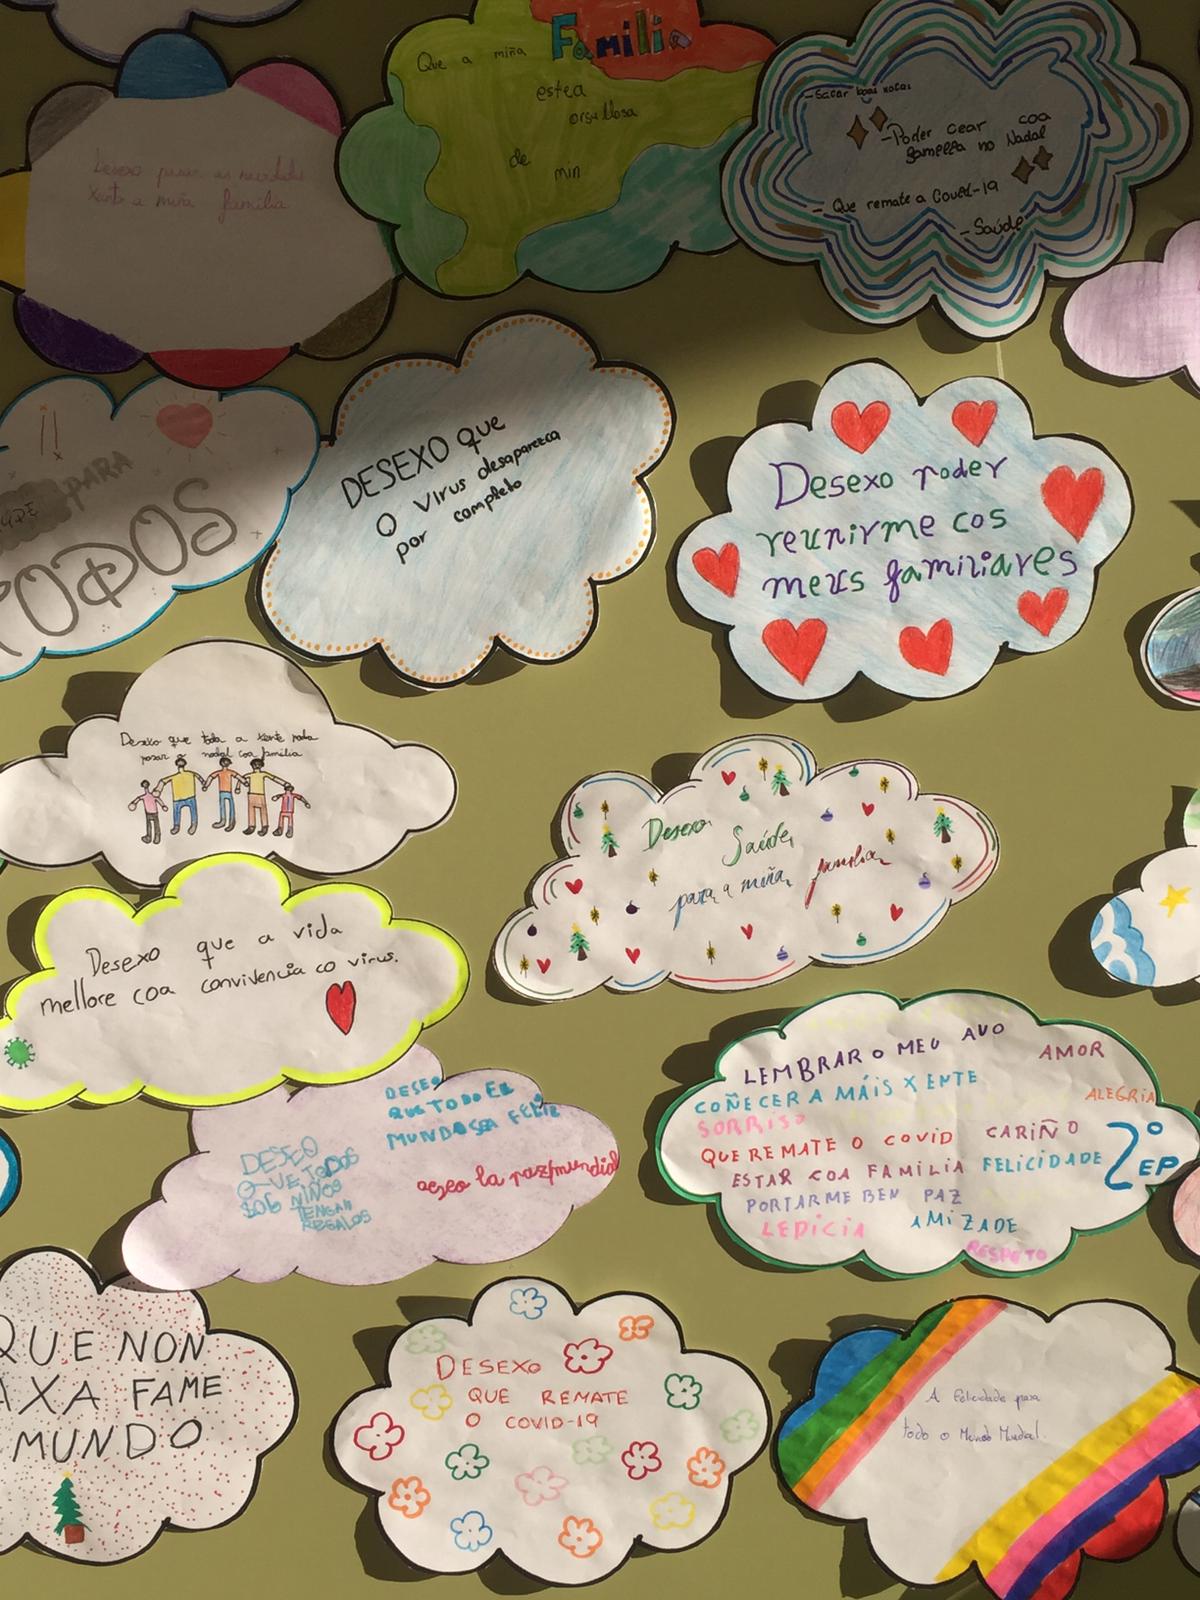 Desexo pasar as navidades
Xunto a miña familia
Que a miña Familia
estea
orgullosa
de
min
-Sacar boas notas
-Poder cear coa
familia no Nadal
- Que remate a Covid-19
-Saúde
PARA
TODOS
DESEXO que
O virus desapareza
por completo
Desexo poder
reunirme cos
meus familiares
Desexo que toda a xente poida
pasar o nadal coa familia
Desexo
Saúde
para a miña familia
Desexo que a vida
mellore coa convivencia co virus.
DESEO
QUE TODO EL
MUNDO SEA FELIZ
DESEO
QUE TODOS
LOS NIÑOS
TENGAN
REGALOS
deseo la paz mundial
LEMBRAR O MEU AVO
AMOR
COÑECER A MÁIS XENTE
ALEGRIA
SORRISO
QUE REMATE O COVID CARIÑO
ESTAR COA FAMILIA FELICIDADE
2º EP
PORTARME BEN PAZ
LEDICIA AMIZADE
RESPETO
QUE NON
AXA FAME
MUNDO
DESEXO
QUE REMATE
O COVID-19
A Felicidade para
todo o Mundo Mundial.